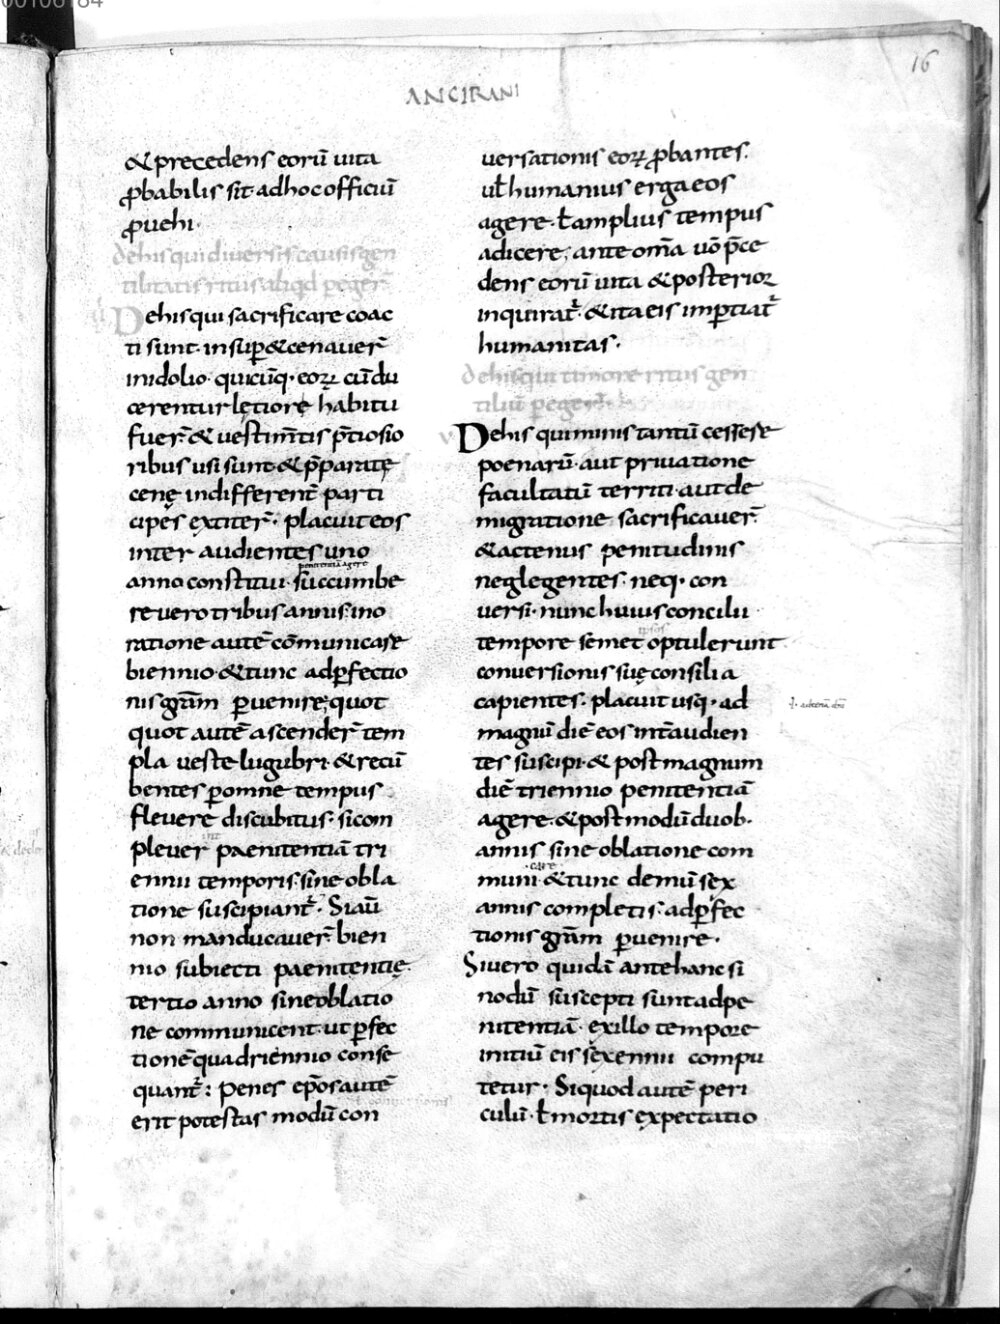 00106184
16
ANCIRANI
& precedens eorū uita
ꝓbabilis sit· adhoc officiū
ꝓuehi·
dehis qui diuersis causis gen
tilitatis ritus aliqd pegeř
Dehis qui sacrificare coac
ti sunt· insuꝑ & cenaueř
inidolio· quicūq· eoꝝ cū du
cerentur lętiore habitu
fueř & uestim̄tis p̄tiosio
ribus usi sunt· & p̄parate
cenę indifferent̄ parti
cipes extiteř· placuit eos
inter audientes uno
penitentiā agere
anno constitui· succumbe
re uero tribus annis· ino
ratione autē cōmunicare
biennio· & tunc adꝑfectio
nis grām ꝑuenire; quot
quot autē ascendeř tem
pla ueste lugubri· & recū
bentes ꝑ omne tempus
fleuere discubitus· si com
pleueř paenitentiā tri
ennii temporis· sine obla
tione suscipiant̄· Si aū
non manducaueř bien
nio subiecti paenitentię·
tertio anno sine oblatio
ne communicent· ut ꝑfec
tionē quadriennio conse
quant̄: Penes ep̄os autē
erit potestas modū con
uersationis eoꝝ ꝓbantes·
uł humanius erga eos
agere· ł amplius tempus
adicere; ante om̄a uō p̄ce
dens eorū uita & posterioꝝ
inquirat̄· & ita eis imꝑtiat̄
humanitas·
dehis qui timore ritus gen
tiliū pegeř
Dehis qui minis tantū cessere
poenarū· aut priuatione
facultatū territi· aut de
migratione sacrificaueř
& actenus penitudinis
neglegentes· neq· con
uersi· nunc huius concilii
tempore semet optulerunt
conuersionis suę consilia
capientes· placuit usq· ad
magnū diē eos int̄ audien
tes suscipi· & post magnum
diē triennio penitentiā
agere· & postmodū duob·
annis sine oblatione com
care
muni· & tunc demū sex
annis completis· adꝑfec
tionis grām ꝑuenire·
Siuero quidā ante hanc si
nodū suscepti sunt ad pe
nitentiā· ex illo tempore
initiū eis sexennii compu
tetur· Siquod autē peri
culū· ł mortis expectatio